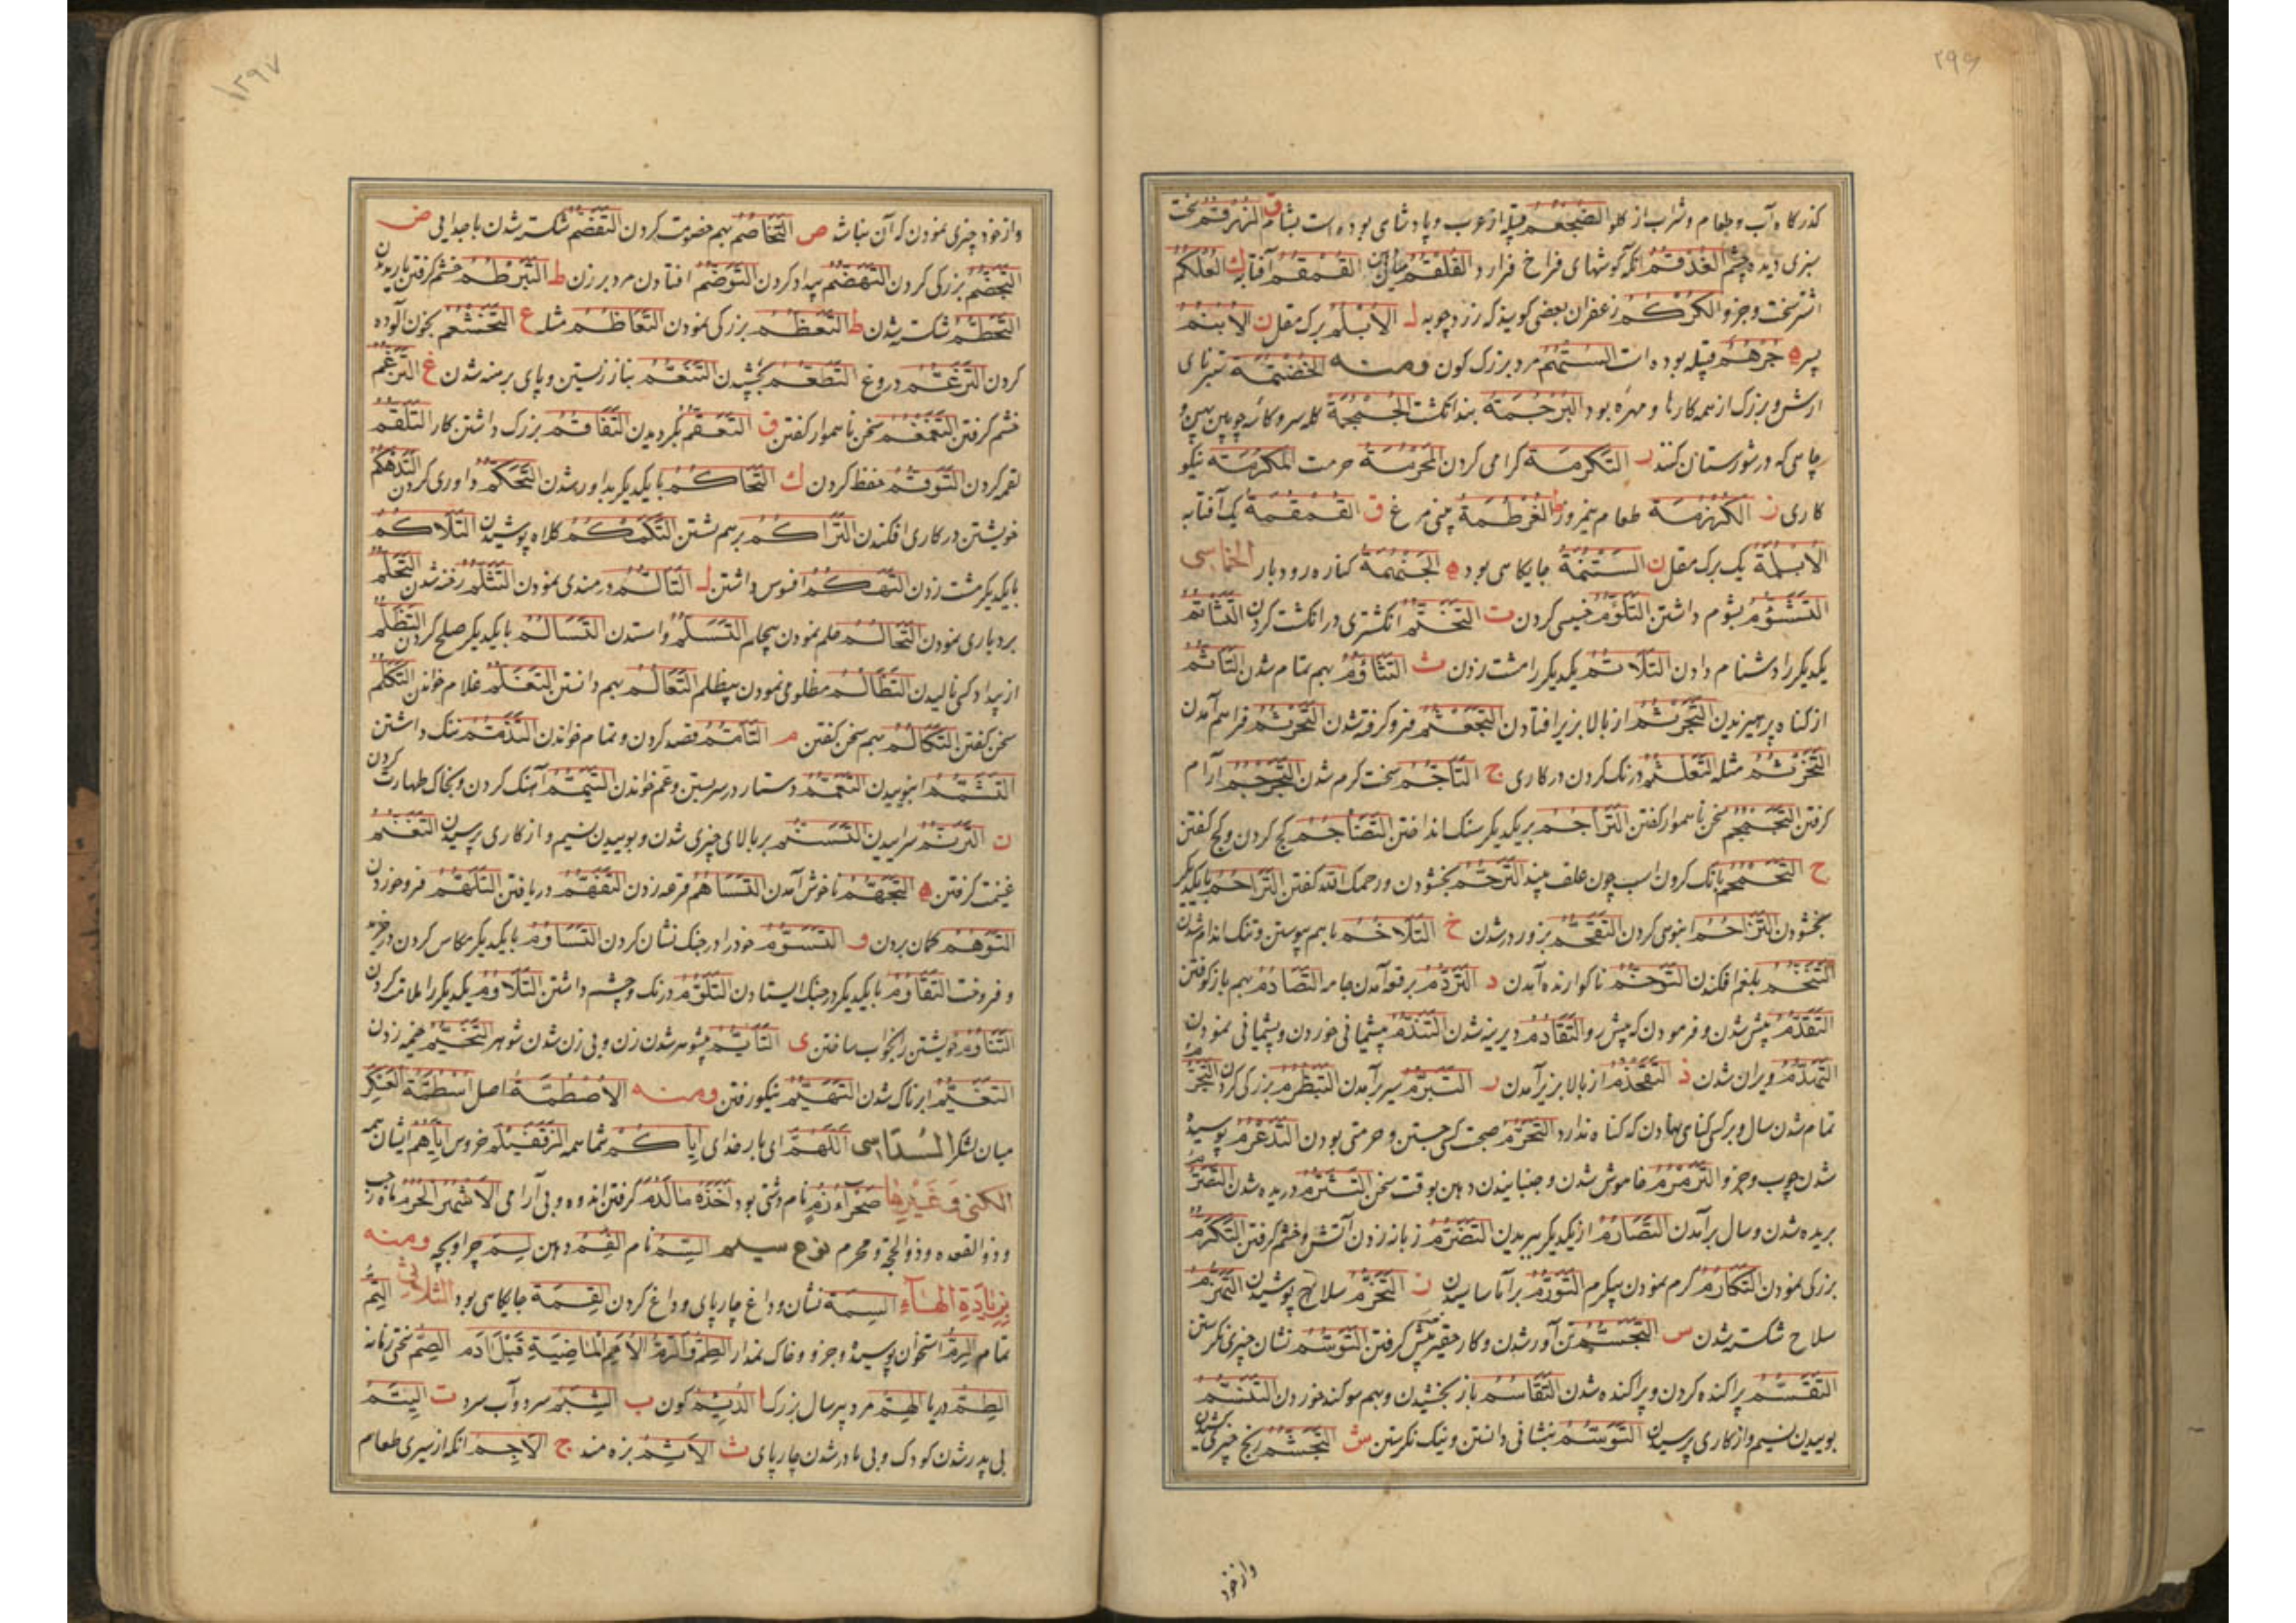 ۲۹۶
کذرکاه آب و طعام و شراب از کلو الضجعم قبیله از عرب و پادشاهی بوده است بشام ق
سبزی دیده چشم الغذقم انکه کوشهای فراخ فرا رد القلقم القمقم آفتابه ك العلکم
اشتر سخت وجزو الکرکم زعفران بعضی کویند که زردچوبه ل الابلم برک مقل ن الابنم
پسر ه جرهم قبیله بوده است الستهم مرد بزرک کون ومنه الخضمة ستبرنای
ارش و بزرک از همه کارها و مهره بود البرجمة بند انکشت الجمجمة کله سر و کاسه چوبین و
چاهی که در شورستان کنند ر التکرمة کرامی کردن المحرمة حرمت المکرمة نیکو
کاری ز الکهزمة طعام نیمروز ط الغرطمة ق القمقمة یک آفتابه
الابلمة یک برک مقل ن الستنمة جایکاهی بود ه الجنهمة کناره رودبار الخماسی
التشؤم بشوم داشتن التلؤم خسیسی کردن ت التختم انکشتری در انکشت کردن التشاتم
یکدیکر را دشنام دادن التلاتم یکدیکر را مشت زدن ث التثاؤم بهم تمام شدن التأثم
از کناه پرهیزیدن التجرثم از بالا بزیر افتادن التجعثم فرو کرفته شدن التحرثم فراهم آمدن
التخرثم مثله التعلثم درنک کردن در کاری ج التاجم سخت کرم شدن الترجم آرام
کرفتن التجمجم سخن ناهموار کفتن التراجم بریکدیکر سنک انداختن التضاجم کج کردن و کج کفتن
ح التحمحم بانک کردن اسب چون علف بیند الترحم بخشودن و رحمک الله کفتن التراحم بایکدیکر
بخشودن التزاحم انبوهی کردن التقحم بزور در شدن خ التلاخم باهم پیوستن و تنک اندام شدن
التنخم بلغم افکندن التوخم ناکوارنده آمدن د التردم برقعه آمدن جامه التصادم بهم باز کوفتن
التقدم پیش شدن و فرمودن که پیش رو التقادم دیرینه شدن التندم پشیمانی خوردن و پشیمانی نمودن
التهدم ویران شدن ذ التقحذم از بالا بزیر آمدن ر التبرم سیر برآمدن التبظرم بزرکی کردن التجرم
تمام شدن سال و بر کسی کناهی نهادن که کناه ندارد التحرم صحبت کسی جستن و حرمتی بودن التدعرم پوسیده
شدن چوب وجزو الترمرم خاموش شدن و جنبانیدن دهن بوقت سخن التشرم دریده شدن التصرم
بریده شدن و سال برآمدن التصارم از یکدیکر ببریدن التضرم زبانه زدن آتش و خشم کرفتن التکرم
بزرکی نمودن التکارم کرم نمودن بیکرم التورم برآماسانیدن ز التحزم سلاح پوشیدن التهزم
سلاح شکسته شدن س التجسم تن آور شدن و کار حقیر پیش کرفتن التوسم نشان چیزی نکرستن
التقسم پراکنده کردن و پراکنده شدن التقاسم باز بخشیدن و بهم سوکند خوردن التنسم
بوییدن نسیم و از کاری پرسیدن التوسم بنشانی دانستن و نیک نکرستن ش التجشم رنج چیزی کشیدن
واز خود
۲۹۷
واز خود چیزی نمودن که آن نباشد ص التخاصم بهم خصومت کردن التقضم شکسته شدن با جدایی ض
التجضم بزرکی کردن التهضم بیداد کردن التوضم افتادن مرد بر زن ط التبرطم خشم کرفتن
التحطم شکسته شدن ظ التعظم بزرکی نمودن التعاظم مثله ع التخثعم بخون آلوده
کردن التزغم دروغ التطعم بچشیدن التنعم بناز زیستن و پای برهنه شدن غ التزغم
خشم کرفتن التغمغم سخن ناهموار کفتن ق التعقم بگردیدن التفاقم بزرک داشتن کار التلقم
لقمه کردن التوقم حفظ کردن ك التحاکم با یکدیکر بداور شدن التحکم داوری کردن التدهکم
خویشتن در کاری افکندن التراکم برهم نشستن التکمکم کلاه پوشیدن التلاکم
بایکدیکر مشت زدن التهکم افسوس داشتن ل التالم دردمندی نمودن التثلم رخنه شدن التحلم
بردباری نمودن التحالم حلم نمودن بیحلم التسلم واستدن التسالم بایکدیکر صلح کردن التظلم
از بیداد کسی نالیدن التظالم مظلومی نمودن بیظلم التعالم بهم دانستن التغلم غلام خواندن التکلم
سخن کفتن التکالم بهم سخن کفتن م التامم قصد کردن و تمام خواندن التذمم ننک داشتن
التشمم انبوییدن التعمم دستار در سر بستن و عم خواندن التیمم آهنک کردن و بخاک طهارت کردن
ن الترنم سراییدن التسنم بر بالای چیزی شدن و بوییدن نسیم و از کاری پرسیدن التغنم
غنیمت کرفتن ه التجهم ناخوش آمدن التساهم قرعه زدن التفهم دریافتن التلهم فرو خوردن
التوهم کمان بردن و التسوم خود را در جنک نشان کردن التساوم بایکدیکر مکاس کردن در خرید
و فروخت التقاوم بایکدیکر در جنک ایستادن التلوم درنک و چشم داشتن التلاوم یکدیکر را ملامت کردن
التناوم خویشتن را بخواب ساختن ی التایم بیشوهر شدن زن و بی زن شدن شوهر التخیم خیمه زدن
التغیم ابرناک شدن التهیم نیکو رفتن ومنه الاصطمة اصل اسطمة العسکر
میان لشکر السداسی اللهم ای بار خدای ایاکم شما همه الزقفیلم خروس ایاهم ایشان همه
الکنی وغیرها صحراء زم نام دشتی بود اخذه ما لدم کرفتن اندوه و بی آرامی الاشهر الحرم ماه رجب
و ذو القعده و ذو الحجة و محرم نوع سیلم الیتم نام الفم دهن لیم چرا و بچه ومنه
بزیادة الهاء السمة نشان و داغ چارپای و داغ کردن لقمة جایکاهی بود الثلاثی التم
تمام الرم استخوان پوسیده وجزو و خاک نمدار الطم والرم الامم الماضیة قبل ادم الصم سختی زمانه
الطم دریا الهم مرد پیر سال بزرک ا الدیم کون ب الشبم سرد و آب سرد ت الیتم
بی پدر شدن کودک و بی مادر شدن چارپای ث الاثم بزه مند ج الاجم انکه از سیری طعام